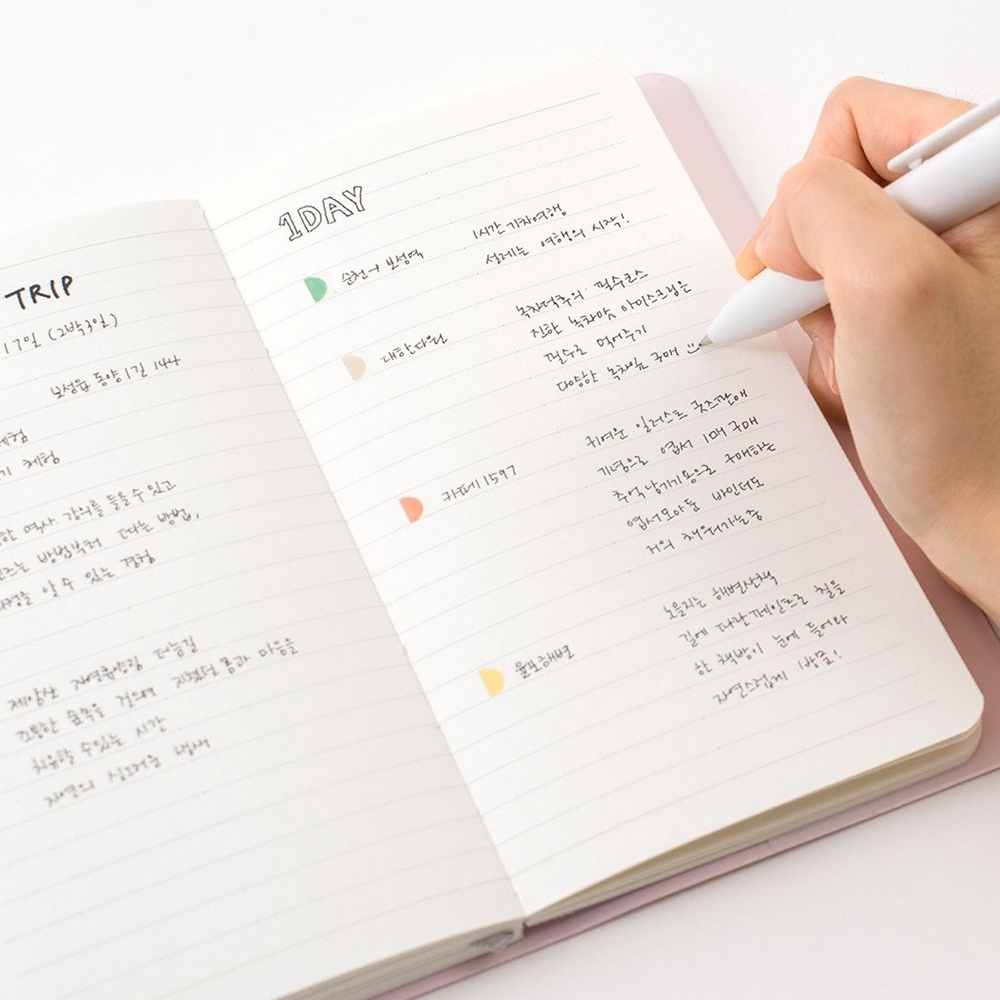 TRIP
17일 (2박3일)
보성읍 동양1길 144
체험
기 체험
한 역사 강의를 들을 수 있고
방법부터 따는 방법,
알 수 있는 경험
제암산 자연휴양림 더늠길
숲속을 걸으며 지쳤던 몸과 마음을
치유할 수 있는 시간
자연의 싱그러운 냄새
1DAY
순천→보성역
1시간 기차여행
설레는 여행의 시작!
대한다원
녹차덕후의 필수코스
진한 녹차맛 아이스크림은
필수로 먹어주기
다양한 녹차잎 구매
카페 1597
귀여운 일러스트 굿즈판매
기념으로 엽서 1매 구매
추억남기기용으로 구매하는
엽서모아둔 바인더도
거의 채워가는중
율포해변
노을지는 해변산책
길에 다란 페인트로 칠을
한 책방이 눈에 들어와
자연스럽게 1방문!